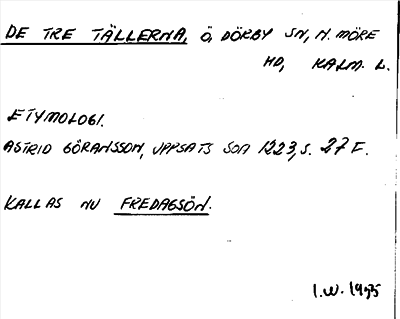 DE TRE TÄLLERNA, Ö, DÖRBY SN, N. MÖRE
HD, KALM. L.
ETYMOLOGI.
ASTRID GÖRANSSON, UPPSATS SOA 1223, S. 27 F.
KALLAS NU FREDAGSÖN.
I.W. 1975